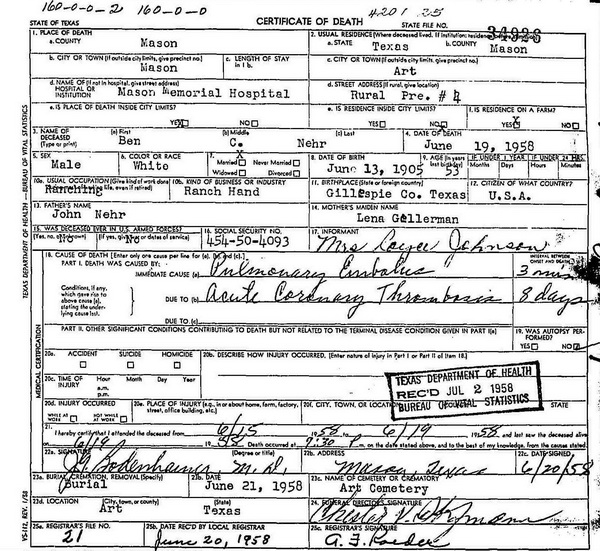 160-0-0-2 160-0-0
4201 25
STATE OF TEXAS CERTIFICATE OF DEATH STATE FILE NO. 34926
1. PLACE OF DEATH
a. COUNTY Mason
2. USUAL RESIDENCE (Where deceased lived. If institution: residence before admission)
a. STATE Texas b. COUNTY Mason
b. CITY OR TOWN (If outside city limits, give precinct no.) Mason
c. LENGTH OF STAY in 1 b.
c. CITY OR TOWN (If outside city limits, give precinct no.) Art
d. NAME OF (If not in hospital, give street address) HOSPITAL OR INSTITUTION Mason Memorial Hospital
d. STREET ADDRESS (If rural, give location) Rural Pre. # 4
e. IS PLACE OF DEATH INSIDE CITY LIMITS? YES X NO
e. IS RESIDENCE INSIDE CITY LIMITS? YES NO
f. IS RESIDENCE ON A FARM? YES X NO
3. NAME OF DECEASED (Type or print)
(a) First Ben (b) Middle C. (c) Last Nehr
4. DATE OF DEATH June 19, 1958
5. SEX Male
6. COLOR OR RACE White
7. Married X Never Married Widowed Divorced
8. DATE OF BIRTH June 13, 1905
9. AGE (In years last birthday) 53
IF UNDER 1 YEAR Months Days
IF UNDER 24 HRS. Hours Minutes
10a. USUAL OCCUPATION (Give kind of work done even if retired) Ranching
10b. KIND OF BUSINESS OR INDUSTRY Ranch Hand
11. BIRTHPLACE (State or foreign country) Gillespie Co. Texas
12. CITIZEN OF WHAT COUNTRY? U.S.A.
13. FATHER'S NAME John Nehr
14. MOTHER'S MAIDEN NAME Lena Gellerman
15. WAS DECEASED EVER IN U.S. ARMED FORCES?
(Yes, no, or unknown) No (If yes, give war or dates of service)
16. SOCIAL SECURITY NO. 454-50-4093
17. INFORMANT Mrs Johnson
18. CAUSE OF DEATH [Enter only one cause per line for (a), (b), and (c).]
INTERVAL BETWEEN ONSET AND DEATH
PART I. DEATH WAS CAUSED BY:
IMMEDIATE CAUSE (a) Pulmonary Embolus 3 min
Conditions, if any, which gave rise to above cause (a), stating the underlying cause last.
DUE TO (b) Acute Coronary Thrombosis 8 days
DUE TO (c)
PART II. OTHER SIGNIFICANT CONDITIONS CONTRIBUTING TO DEATH BUT NOT RELATED TO THE TERMINAL DISEASE CONDITION GIVEN IN PART I(a)
19. WAS AUTOPSY PERFORMED? YES NO
20a. ACCIDENT SUICIDE HOMICIDE
20b. DESCRIBE HOW INJURY OCCURRED. (Enter nature of injury in Part I or Part II of item 18.)
20c. TIME OF INJURY Hour a.m. p.m. Month Day Year
TEXAS DEPARTMENT OF HEALTH
REC'D JUL 2 1958
BUREAU OF VITAL STATISTICS
20d. INJURY OCCURRED WHILE AT WORK NOT WHILE AT WORK
20e. PLACE OF INJURY (e.g., in or about home, farm, factory, street, office building, etc.)
20f. CITY, TOWN, OR LOCATION
21. I hereby certify that I attended the deceased from 6/15 1958 to 6/19 1958 and last saw the deceased alive
on 6/19 1958 Death occurred at 7:30 P. m., on the date stated above, and to the best of my knowledge, from the causes stated.
22a. SIGNATURE (Degree or title) Bodenhamer, M.D.
22b. ADDRESS Mason, Texas
22c. DATE SIGNED 6/20/58
23a. BURIAL, CREMATION, REMOVAL (Specify) Burial
23b. DATE June 21, 1958
23c. NAME OF CEMETERY OR CREMATORY Art Cemetery
23d. LOCATION (City, town, or county) Art (State) Texas
24. FUNERAL DIRECTOR'S SIGNATURE
25a. REGISTRAR'S FILE NO. 21
25b. DATE REC'D BY LOCAL REGISTRAR June 20, 1958
25c. REGISTRAR'S SIGNATURE
TEXAS DEPARTMENT OF HEALTH — BUREAU OF VITAL STATISTICS
MEDICAL CERTIFICATION
VS-112, REV. 1/58